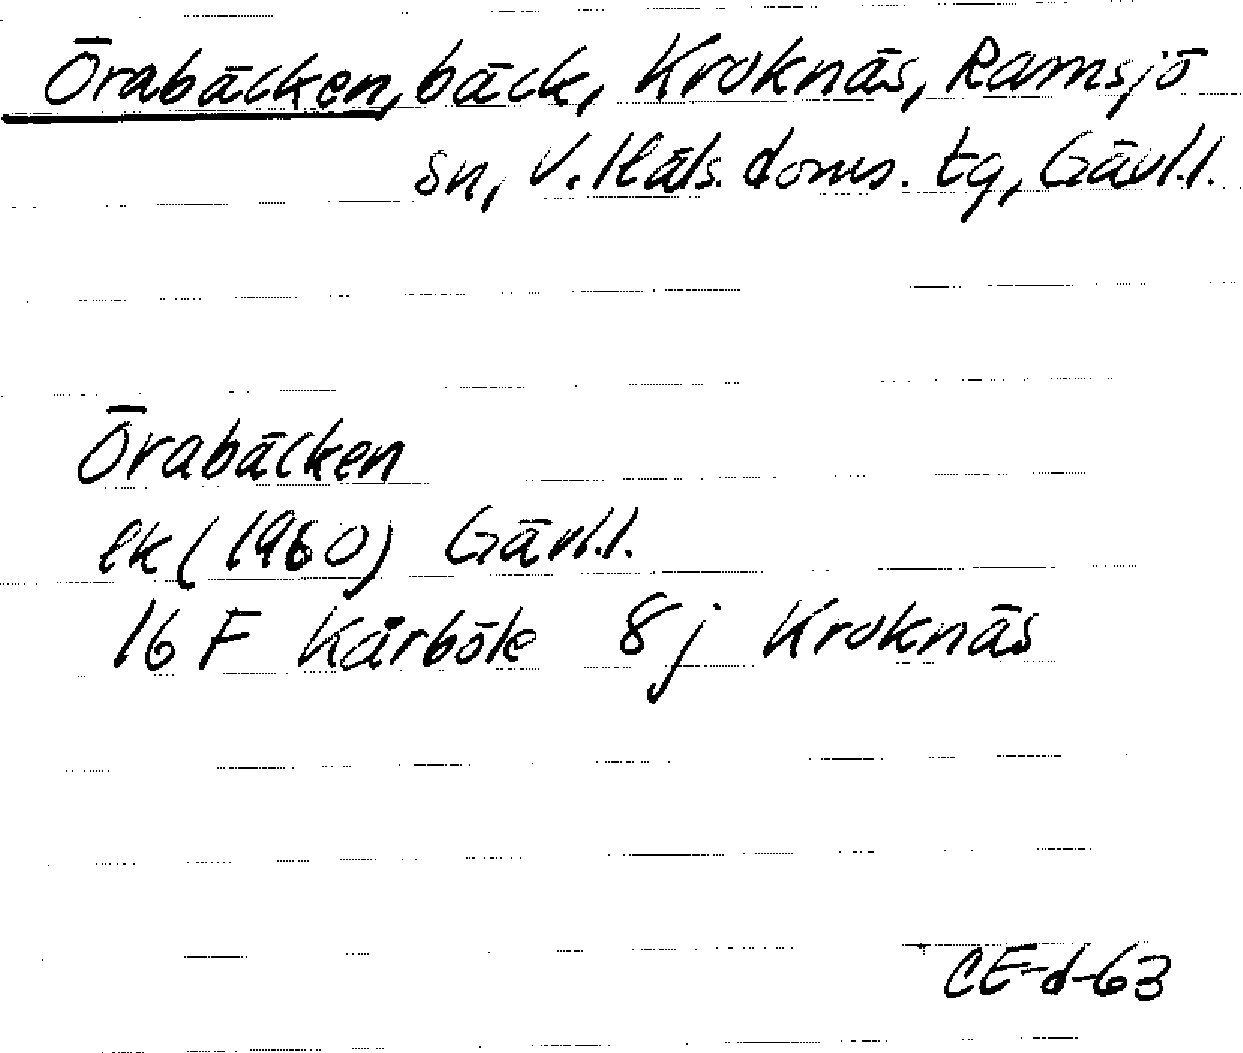 Örabäcken, bäck, Kroknäs, Ramsjö
sn, V. Häls. doms. tg, Gävl.l.
Örabäcken
ek (1960) Gävl.l.
16 F Kårböle 8j Kroknäs
CE-d-63